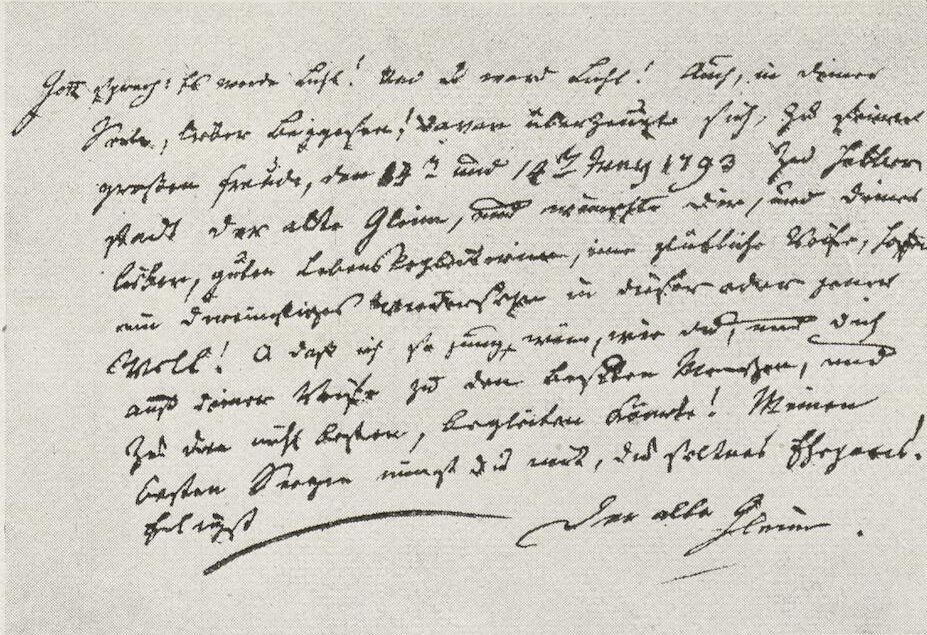 Gott sprach: Es werde Licht! Und es ward Licht! Auch, in deiner
Seele, lieber Baggesen! davon überzeugte sich, zu seiner
großen Freude, den 14 und 14 Juny 1793 zu Halber
stadt der alte Gleim, und wünschte dir, und deiner
lieben, guten Lebensbegleiterinn, eine glückliche Reise,
ein dereinstiges Wiedersehn in dieser oder jener
Welt! O daß ich so jung wäre, wie du, und dich
auf deiner Reise zu den besten Menschen, und
zu den nicht besten, begleiten könnte! Meinen
besten Seegen nimst du mit, du seltnes Ehepaar!
Der alte Gleim.